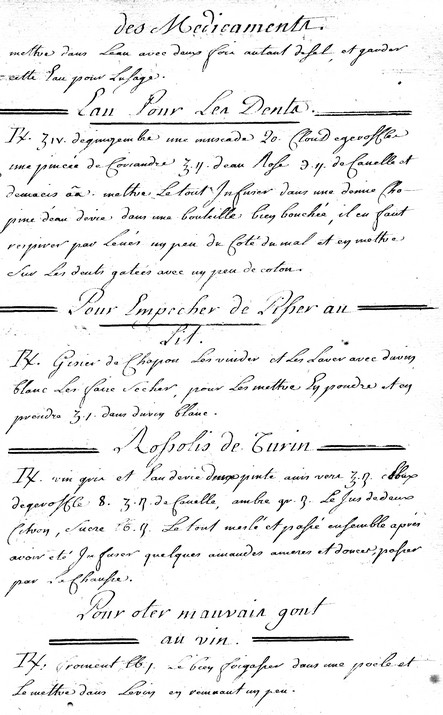 des Medicaments.
mettre dans Leau avec deux fois autant de sel, et garder
cette Eau pour Lusage.
Eau Pour Les Dents.
℞. ʒıv. de gingembre une muscade 20. Cloud egeroffle
une pincée de Coriandre ʒ.ıȷ. deau Rose ʒ.ıȷ. de Canelle et
demacis āā. mettre Le tout Infuser dans une demie Cho-
pine deau devie dans une bouteille bien bouchée, il en faut
respirer par Lenés un peu du Coté du mal et en mettre
sur Les dents gatées avec un peu de coton.
Pour Empecher de Pisser au
Lit.
℞. Gesier de Chapon Les vuider et Les Laver avec du vin
blanc Les faire secher, pour Les mettre En poudre et en
prendre ʒ.ı. dans du vin blanc.
Rossolis de Turin
℞. vin gris et Eau devie deux pinte anis vere clous
degeroffle 8. de Canelle, ambre gr. Le Jus dedeux
Citron, sucre Le tout meslé et passé ensemble aprés
avoir eté Infuser quelques amandes ameres et douces, passer
par La Chausse.
Pour oter mauvais gout
au vin.
℞. froment lb ȷ. Le bien fricasser dans une poele et
Le mettre dans Levin en remuant un peu.